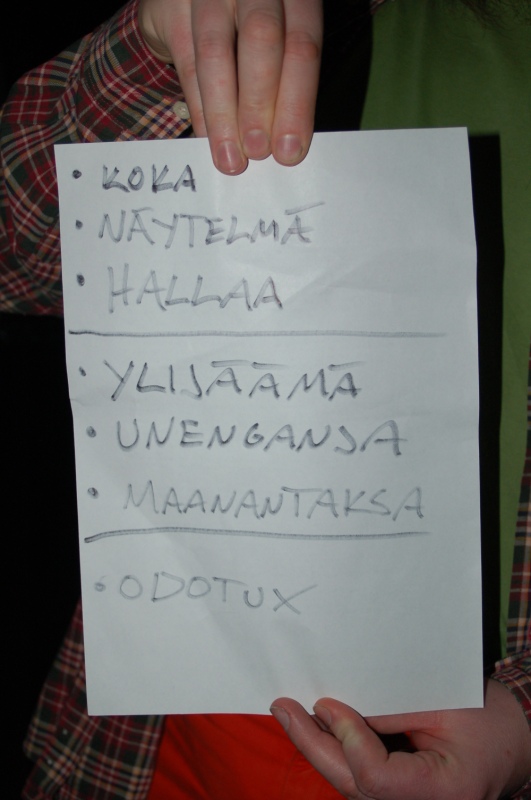 • KOKA
• NÄYTELMÄ
• HALLAA
• YLIJÄÄMÄ
• UNENGANSA
• MAANANTAKSA
• ODOTUX